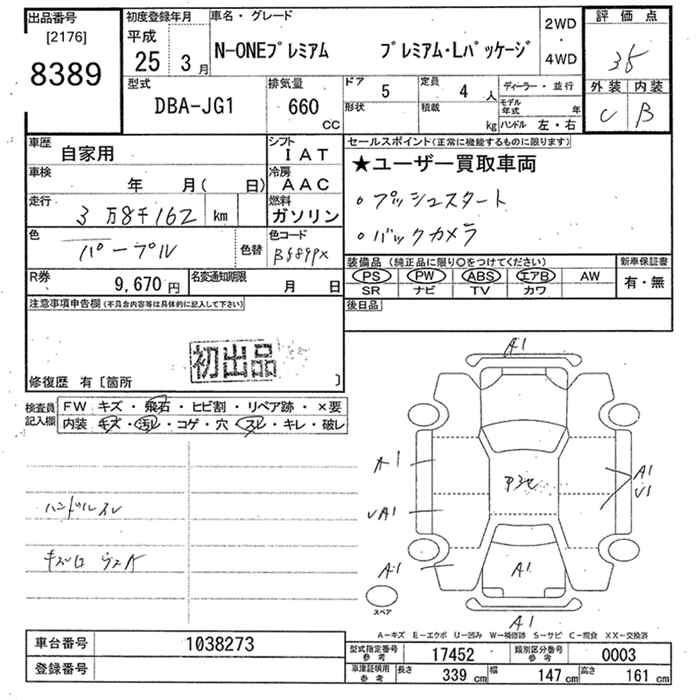 出品番号
[2176]
8389
初度登録年月
平成
25 3月
車名・グレード
N-ONEプレミアム プレミアム・Lパッケージ
2WD
・
4WD
評価点
外装 内装
C B
型式
DBA-JG1
排気量
660
CC
ドア 5
形状
定員 4 人
積載 kg
ディーラー・並行
モデル年式 年
ハンドル 左・右
車歴 自家用
シフト
IAT
車検 年 月( 日)
冷房
AAC
走行 3万8千162 km
燃料
ガソリン
色 パープル 色替
色コード
R券 9,670円
名変通知期限 月 日
セールスポイント(正常に機能するものに限ります)
★ユーザー買取車両
。プッシュスタート
。バックカメラ
装備品(純正品に限り○をつけてください)
PS PW ABS エアB AW
SR ナビ TV カワ
新車保証書
有・無
後日品
注意事項申告欄(不具合内容等は具体的に記入して下さい)
初出品
修復歴 有〔箇所 〕
検査員記入欄
FW キズ・飛石・ヒビ割・リペア跡・×要
内装 キズ・汚レ・コゲ・穴・スレ・キレ・破レ
ハンドルスレ
A1
A1
U1
A1
A1
A1
スペア
A-キズ E-エクボ U-凹み W-補修跡 S-サビ C-腐食 XX-交換済
車台番号 1038273
登録番号
型式指定番号参考 17452
類別区分番号参考 0003
車庫証明用参考 長さ 339 cm 幅 147 cm 高さ 161 cm